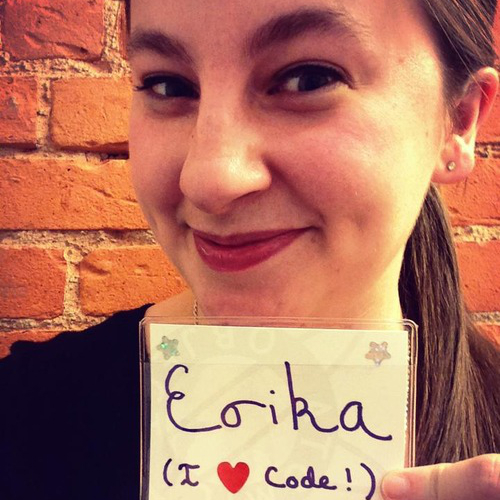 Erika
(I ❤ Code!)